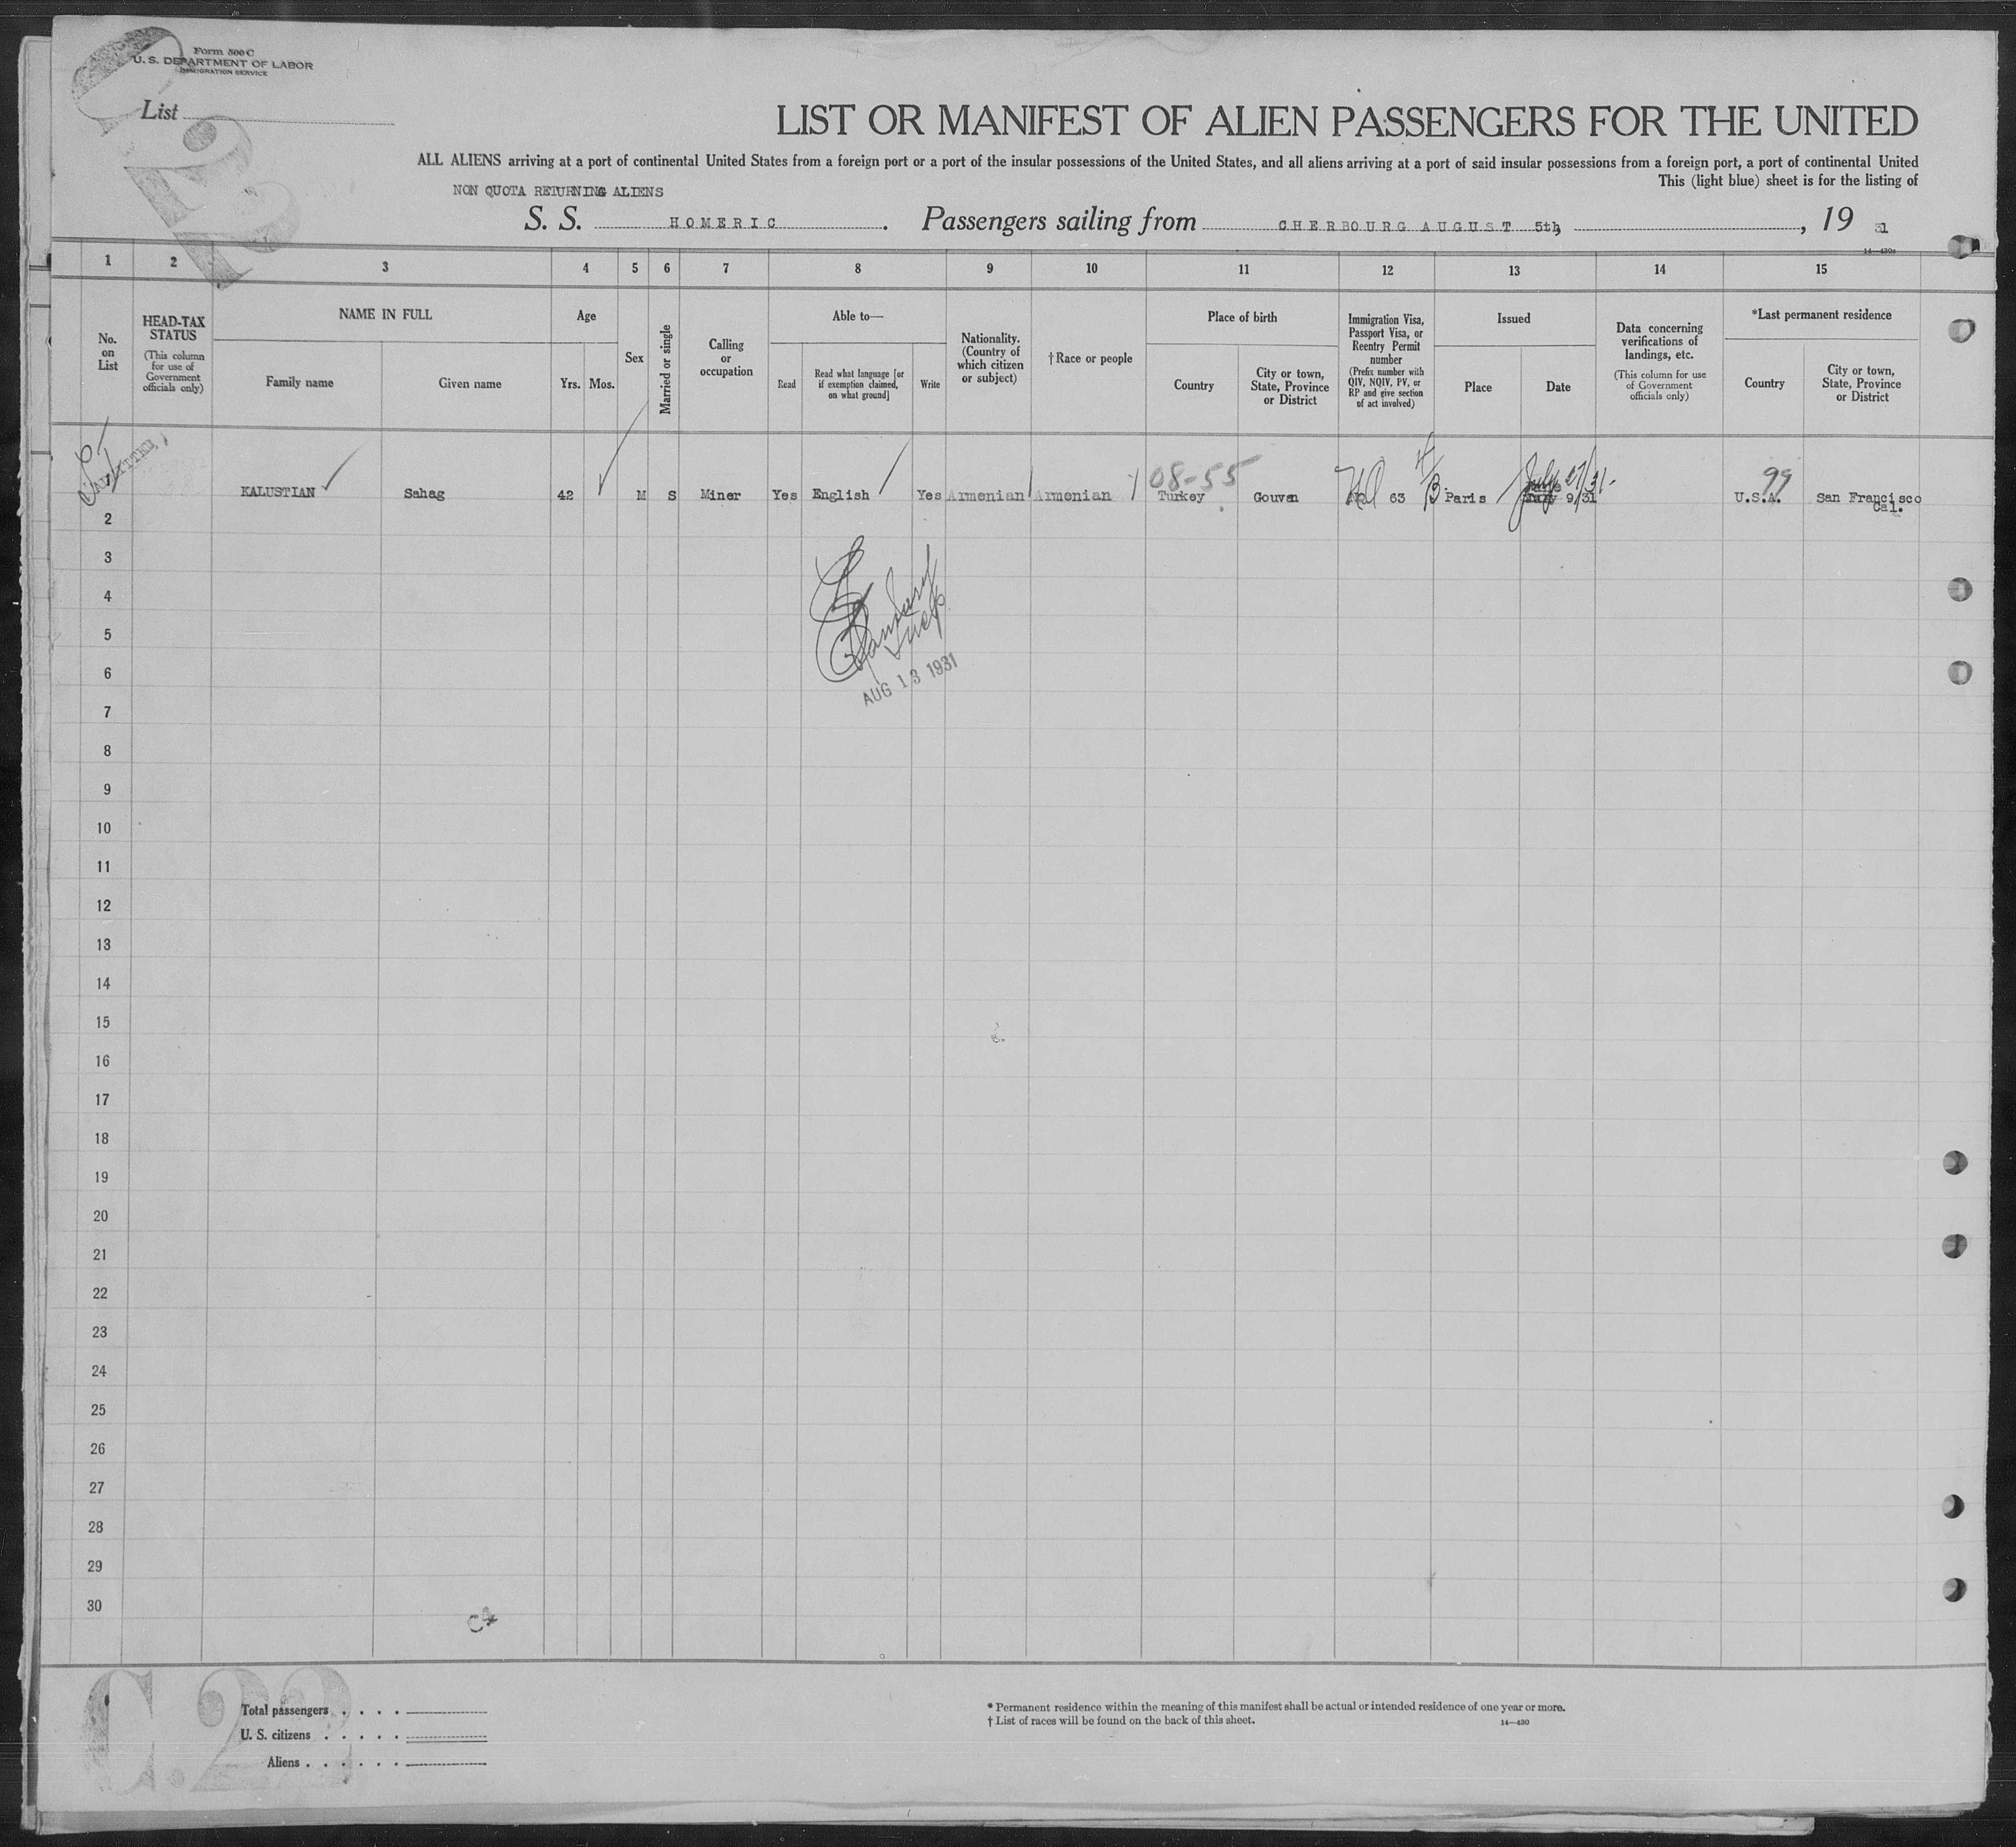 Form 500 C
U. S. DEPARTMENT OF LABOR
IMMIGRATION SERVICE
List
LIST OR MANIFEST OF ALIEN PASSENGERS FOR THE UNITED
ALL ALIENS arriving at a port of continental United States from a foreign port or a port of the insular possessions of the United States, and all aliens arriving at a port of said insular possessions from a foreign port, a port of continental United
This (light blue) sheet is for the listing of
NON QUOTA RETURNING ALIENS
S. S. HOMERIC. Passengers sailing from CHERBOURG AUGUST 5th, , 19 31
14—430c
1 2 3 4 5 6 7 8 9 10 11 12 13 14 15
No. on List
HEAD-TAX STATUS
(This column for use of Government officials only)
NAME IN FULL
Family name
Given name
Age
Yrs. Mos.
Sex
Married or single
Calling or occupation
Able to—
Read
Read what language [or if exemption claimed, on what ground]
Write
Nationality. (Country of which citizen or subject)
† Race or people
Place of birth
Country
City or town, State, Province or District
Immigration Visa, Passport Visa, or Reentry Permit number
(Prefix number with QIV, NQIV, PV, or RP and give section of act involved)
Issued
Place
Date
Data concerning verifications of landings, etc.
(This column for use of Government officials only)
*Last permanent residence
Country
City or town, State, Province or District
08-55
July 27/31-
99
KALUSTIAN Sahag 42 M S Miner Yes English Yes Armenian Armenian Turkey Gouven 63 Paris 9/31 U.S.A. San Francisco
Cal.
2
3
4
5
6
AUG 13 1931
7
8
9
10
11
12
13
14
15
16
17
18
19
20
21
22
23
24
25
26
27
28
29
30
C.22
Total passengers . . . .
U. S. citizens . . . . .
Aliens . . . . . .
* Permanent residence within the meaning of this manifest shall be actual or intended residence of one year or more.
† List of races will be found on the back of this sheet.
14—430